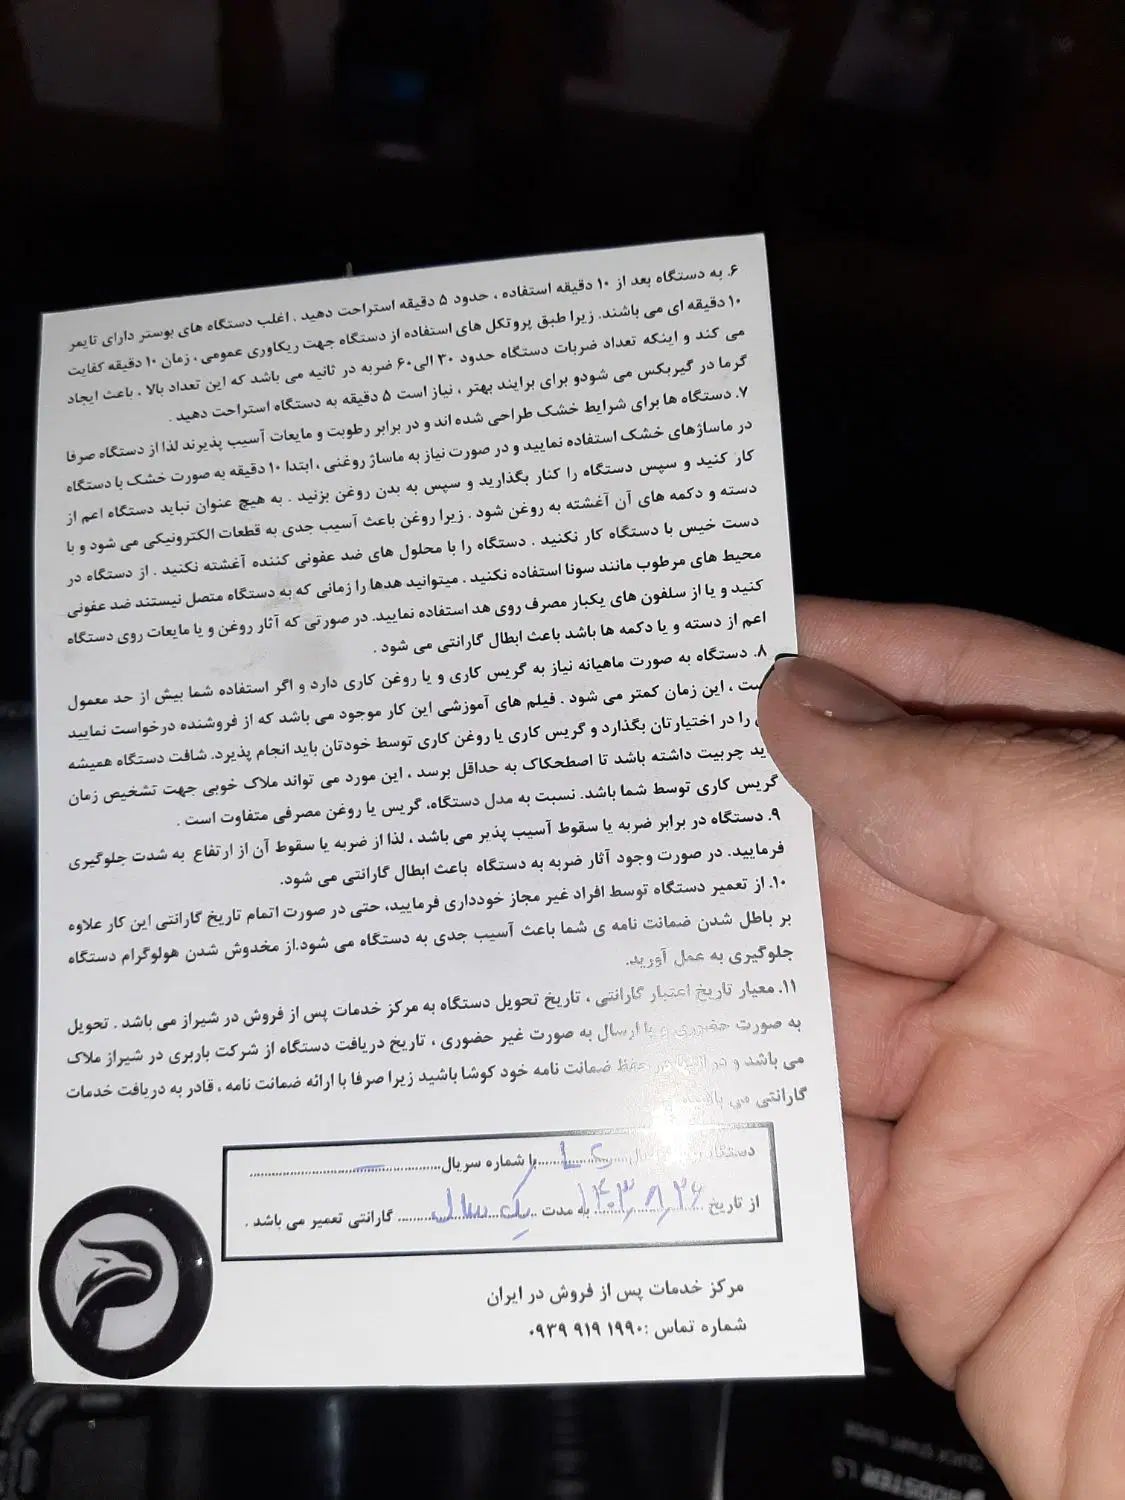 ۶. به دستگاه بعد از ۱۰ دقیقه استفاده ، حدود ۵ دقیقه استراحت دهید . اغلب دستگاه های بوستر دارای تایمر
۱۰ دقیقه ای می باشند. زیرا طبق پروتکل های استفاده از دستگاه جهت ریکاوری عمومی ، زمان ۱۰ دقیقه کفایت
می کند و اینکه تعداد ضربات دستگاه حدود ۳۰ الی ۶۰ ضربه در ثانیه می باشد که این تعداد بالا ، باعث ایجاد
گرما در گیربکس می شودو برای برایند بهتر ، نیاز است ۵ دقیقه به دستگاه استراحت دهید .
۷. دستگاه ها برای شرایط خشک طراحی شده اند و در برابر رطوبت و مایعات آسیب پذیرند لذا از دستگاه صرفا
در ماساژهای خشک استفاده نمایید و در صورت نیاز به ماساژ روغنی ، ابتدا ۱۰ دقیقه به صورت خشک با دستگاه
کار کنید و سپس دستگاه را کنار بگذارید و سپس به بدن روغن بزنید . به هیچ عنوان نباید دستگاه اعم از
دسته و دکمه های آن آغشته به روغن شود . زیرا روغن باعث آسیب جدی به قطعات الکترونیکی می شود و با
دست خیس با دستگاه کار نکنید . دستگاه را با محلول های ضد عفونی کننده آغشته نکنید . از دستگاه در
محیط های مرطوب مانند سونا استفاده نکنید . میتوانید هدها را زمانی که به دستگاه متصل نیستند ضد عفونی
کنید و یا از سلفون های یکبار مصرف روی هد استفاده نمایید. در صورتی که آثار روغن و یا مایعات روی دستگاه
اعم از دسته و یا دکمه ها باشد باعث ابطال گارانتی می شود .
۸. دستگاه به صورت ماهیانه نیاز به گریس کاری و یا روغن کاری دارد و اگر استفاده شما بیش از حد معمول
ست ، این زمان کمتر می شود . فیلم های آموزشی این کار موجود می باشد که از فروشنده درخواست نمایید
را در اختیارتان بگذارد و گریس کاری یا روغن کاری توسط خودتان باید انجام پذیرد. شافت دستگاه همیشه
ید چربیت داشته باشد تا اصطحکاک به حداقل برسد ، این مورد می تواند ملاک خوبی جهت تشخیص زمان
گریس کاری توسط شما باشد. نسبت به مدل دستگاه، گریس یا روغن مصرفی متفاوت است .
۹. دستگاه در برابر ضربه یا سقوط آسیب پذیر می باشد ، لذا از ضربه یا سقوط آن از ارتفاع به شدت جلوگیری
فرمایید. در صورت وجود آثار ضربه به دستگاه باعث ابطال گارانتی می شود.
۱۰. از تعمیر دستگاه توسط افراد غیر مجاز خودداری فرمایید، حتی در صورت اتمام تاریخ گارانتی این کار علاوه
بر باطل شدن ضمانت نامه ی شما باعث آسیب جدی به دستگاه می شود.از مخدوش شدن هولوگرام دستگاه
جلوگیری به عمل آورید.
۱۱. معیار تاریخ اعتبار گارانتی ، تاریخ تحویل دستگاه به مرکز خدمات پس از فروش در شیراز می باشد . تحویل
به صورت حضوری و یا ارسال به صورت غیر حضوری ، تاریخ دریافت دستگاه از شرکت باربری در شیراز ملاک
می باشد و در حفظ ضمانت نامه خود کوشا باشید زیرا صرفا با ارائه ضمانت نامه ، قادر به دریافت خدمات
گارانتی می
دستگاه LS با شماره سریال
از تاریخ ۱۴۰۳/۸/۲۶ به مدت یک سال گارانتی تعمیر می باشد .
مرکز خدمات پس از فروش در ایران
شماره تماس :۰۹۳۹ ۹۱۹ ۱۹۹۰
BOOSTER LS
QUICK START GUIDE